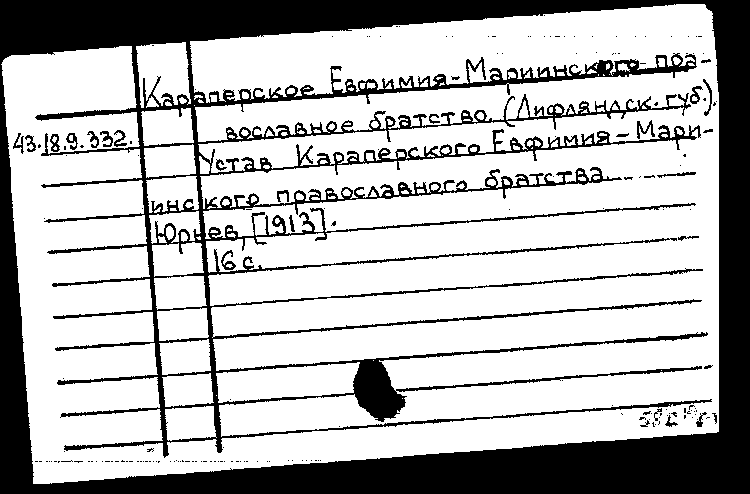 Караперское Евфимия-Мариинского пра-
вославное братство. (Лифляндск. губ.).
43.18.9.332.
Устав Караперского Евфимия-Мари-
инского православного братства.
Юрьев, [1913].
16 с.